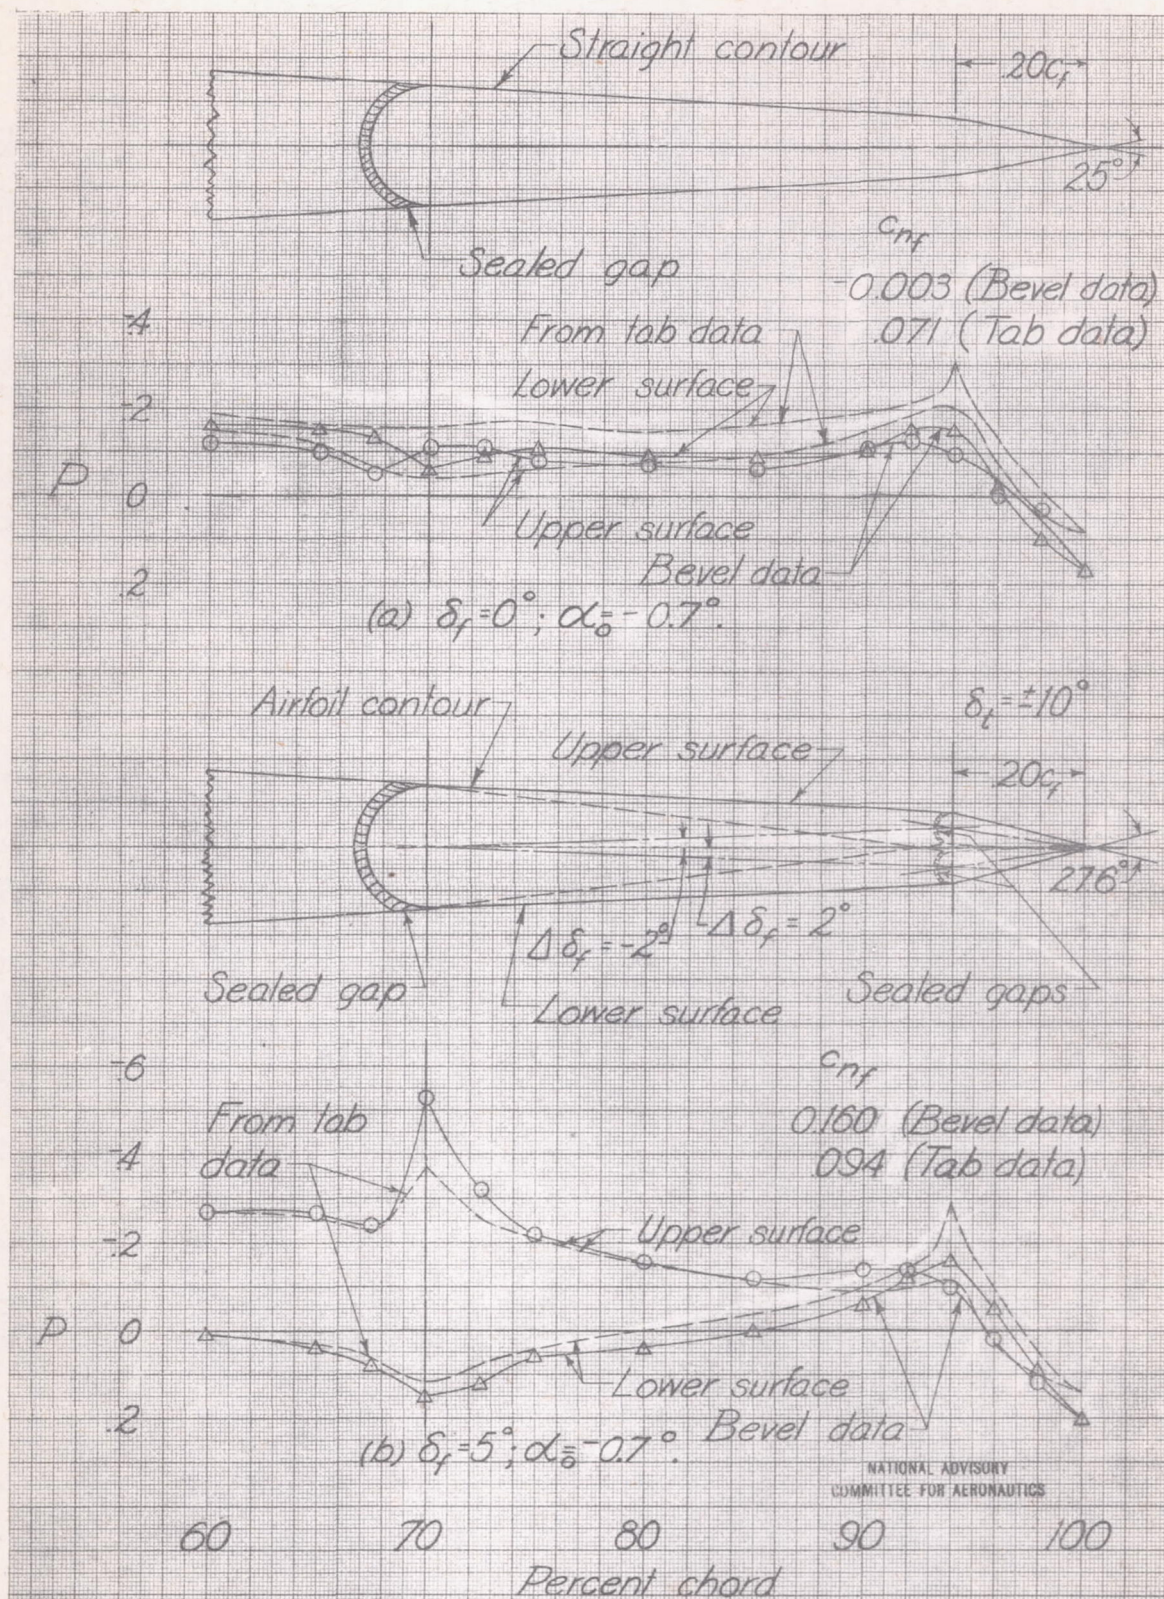 Straight contour
.20c_f
25°
Sealed gap
c_nf
-0.003 (Bevel data)
.071 (Tab data)
From tab data
Lower surface
-.4
-.2
P
0
.2
Upper surface
Bevel data
(a) δ_f=0°; α_o=-0.7°.
Airfoil contour
δ_t=±10°
Upper surface
.20c_f
27.6°
Δδ_f=-2°
Δδ_f=2°
Sealed gap
Sealed gaps
Lower surface
c_nf
-.6
From tab
data
0.160 (Bevel data)
.094 (Tab data)
-.4
-.2
Upper surface
P
0
Lower surface
.2
Bevel data
(b) δ_f=5°; α_o=-0.7°.
NATIONAL ADVISORY
COMMITTEE FOR AERONAUTICS
60 70 80 90 100
Percent chord